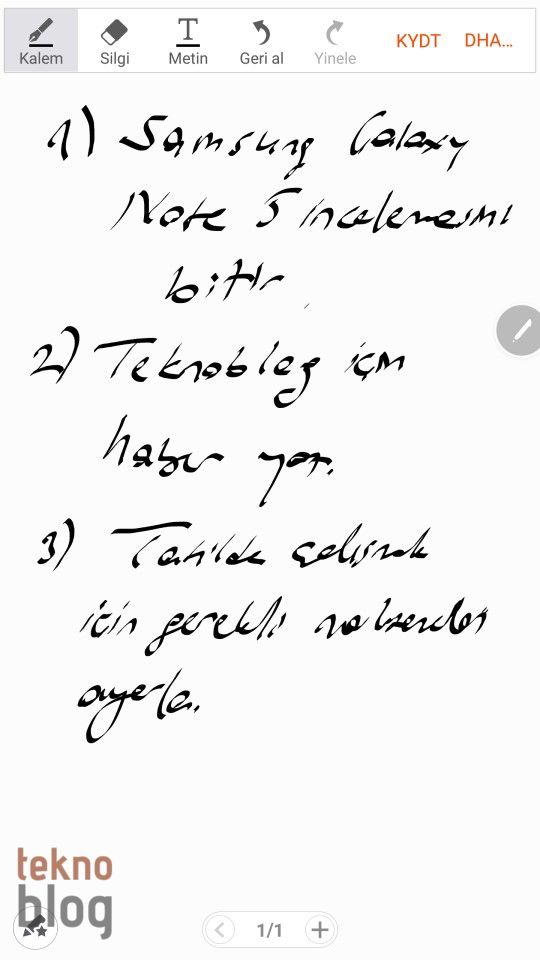 Kalem Silgi Metin Geri al Yinele KYDT DHA...
1) Samsung Galaxy
Note 5 incelemesini
bitir
2) Teknoblog için
haber yaz.
3) Tatilde çalışmak
için gerekli malzemeleri
ayarla.
tekno
blog
1/1